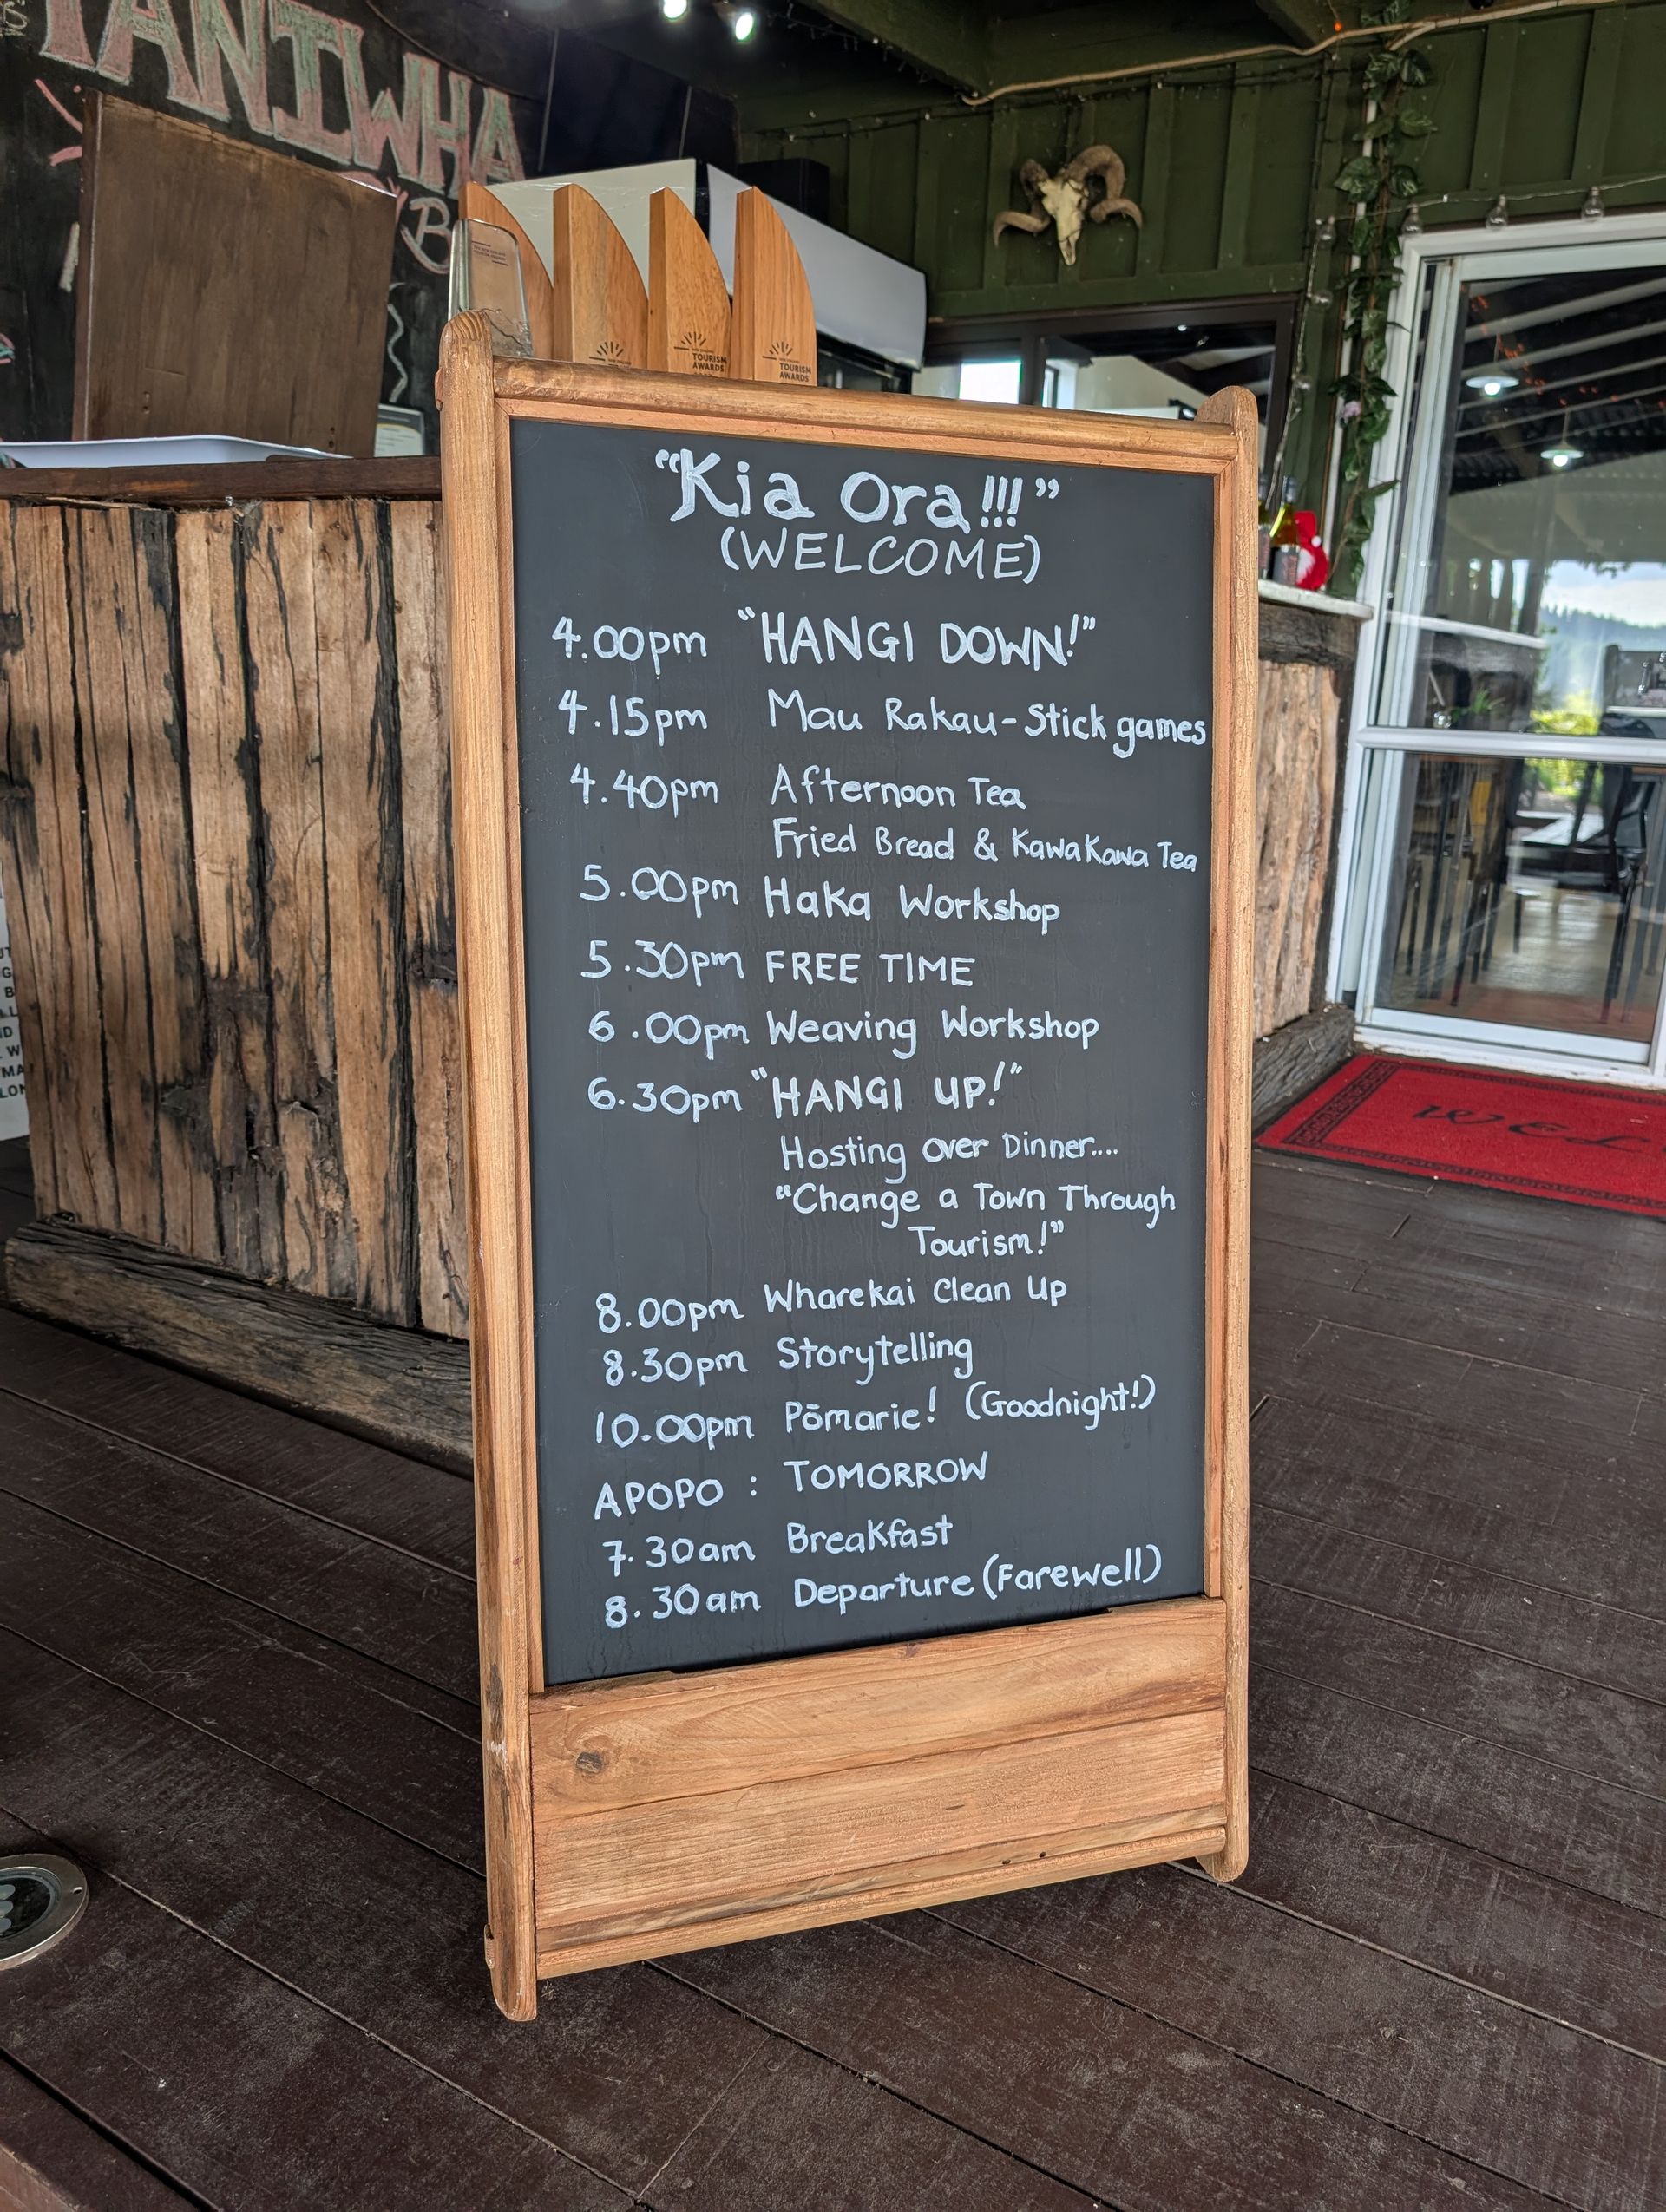 TANIWHA
B
TOURISM
AWARDS
TOURISM
AWARDS
"Kia Ora!!!"
(WELCOME)
4.00pm "HANGI DOWN!"
4.15pm Mau Rakau-Stick games
4.40pm Afternoon Tea
Fried Bread & KawaKawa Tea
5.00pm Haka Workshop
5.30pm FREE TIME
6.00pm Weaving Workshop
6.30pm "HANGI UP!"
Hosting over Dinner....
"Change a Town Through
Tourism!"
8.00pm Wharekai Clean Up
8.30pm Storytelling
10.00pm Pōmarie! (Goodnight!)
APOPO : TOMORROW
7.30am Breakfast
8.30am Departure (Farewell)
WEL